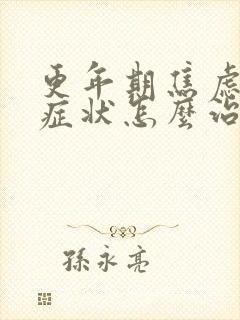 更年期焦虑
症状怎麼治
孫永亮